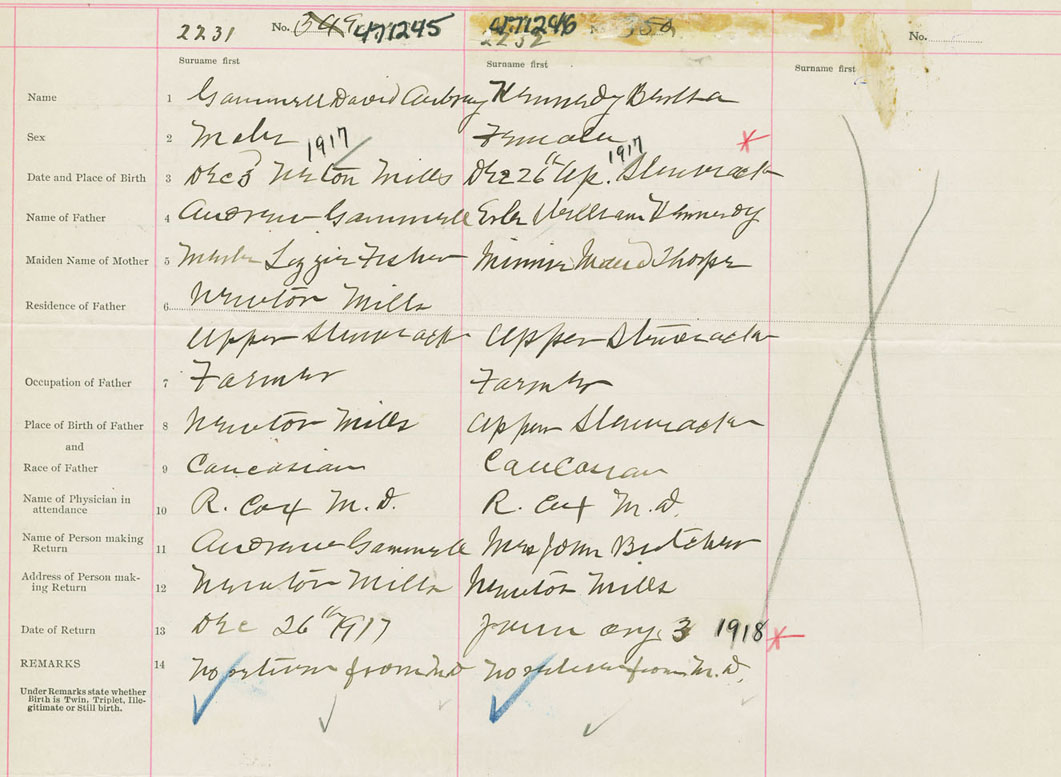 2231 No. 349 471245 471246 2232 No. 350 No.
Surname first Surname first Surname first
Name 1 Gammell David Aubrey Kennedy Bertha
Sex 2 Male Female
1917 1917
Date and Place of Birth 3 Dec 3 Newton Mills Dec 26th Up. Stewiacke
Name of Father 4 Andrew Gammell William Kennedy
Maiden Name of Mother 5 Lizzie Fisher Minnie Maud Thorpe
Residence of Father 6 Newton Mills
Upper Stewiacke Upper Stewiacke
Occupation of Father 7 Farmer Farmer
Place of Birth of Father 8 Newton Mills Upper Stewiacke
and
Race of Father 9 Caucasian Caucasian
Name of Physician in
attendance 10 R. Cox M.D. R. Cox M.D.
Name of Person making
Return 11 Andrew Gammell Mrs John Butcher
Address of Person mak-
ing Return 12 Newton Mills Newton Mills
Date of Return 13 Dec 26th 1917 January 3 1918
REMARKS 14 No return from M.D No return from M.D.
Under Remarks state whether
Birth is Twin, Triplet, Ille-
gitimate or Still birth.